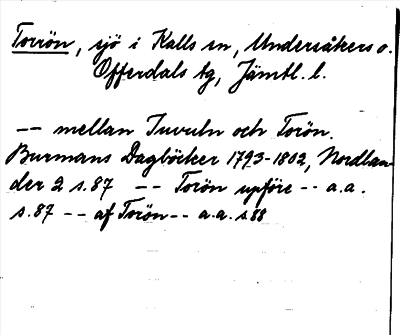 Torrön, sjö i Kalls sn, Undersåkers o.
Offerdals tg, Jämtl. l.
-- mellan Juvuln och Torön.
Burmans Dagböcker 1793-1802, Nordlan-
der 2 s.87 -- Torön upföre -- a.a.
s.87 -- af Torön -- a.a. s.88